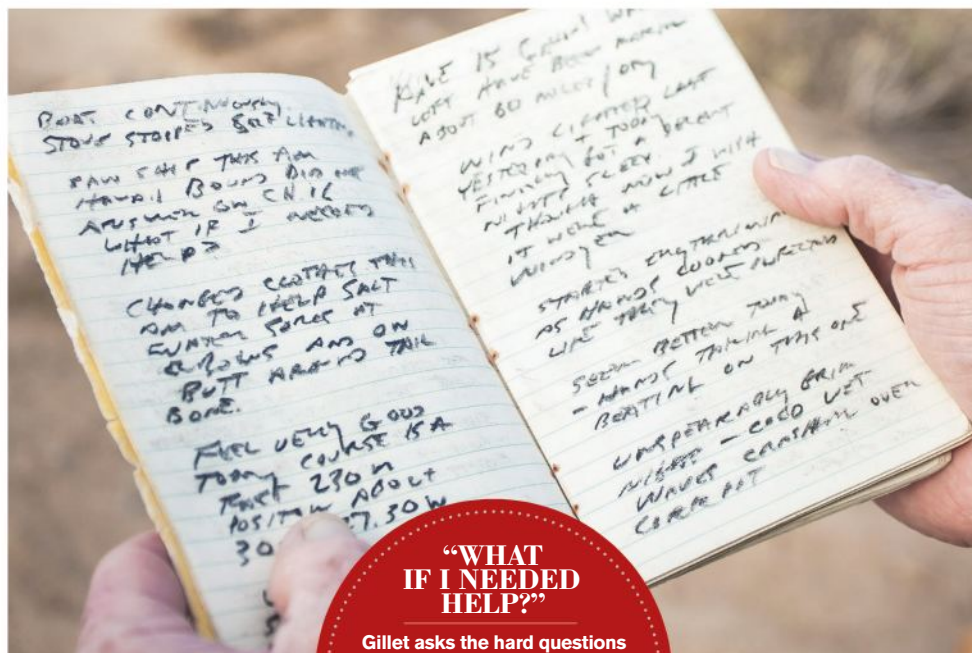 BOAT CONTINUOUSLY
STOVE STOPPED SELF LIGHTING
SAW SHIP THIS AM
HAWAII BOUND DID NOT
ANSWER ON CH. 16
WHAT IF I NEEDED
HELP?
CHANGED CLOTHES THIS
AM TO HELP SALT
WATER SORES AT
ELBOWS AND ON
BUTT AROUND TAIL
BONE.
FEEL VERY GOOD
TODAY COURSE IS A
230 M
POSITION ABOUT
7.30 W
IS
LOFT HAVE BEEN
ABOUT 60 MILES / DAY
WIND LIGHTED LATE
YESTERDAY + TODAY
FINALLY GOT A DECENT
NIGHTS SLEEP.
THOUGH NOW I WISH
IT WERE A LITTLE
WINDIER
STARTED
AS HANDS LOOKED
LIKE THEY WERE INFECTED
SEEM BETTER TODAY
- HANDS TAKING A
BEATING ON THIS ONE
UNSPEAKABLY GRIM
NIGHT - COLD WET
WAVES CRASHING OVER
COCKPIT
“WHAT
IF I NEEDED
HELP?”
Gillet asks the hard questions